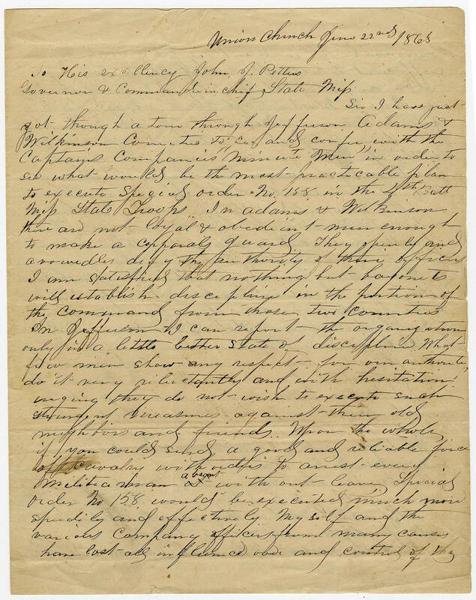 Union Church June 22nd /1863
To His excellency John J. Pettus
Governor & Commander in chief, State Miss
Sir I have just
got through a tour through Jefferson Adams &
Wilkinson Counties to see and confer with the
Captains Companies "Minute Men" in order to
see what would be the most practicable plan
to execute Special order No. 158 in the 4th Batt
Miss State Troops. In adams & Wilkinson
there are not loyal & obedient men enough
to make a corporals guard. They openly and
avowedly defy the authority of their officers
I am satisfied that nothing but bayonets
will establish discipline in the portion of
the command from those two counties
In Jefferson I can report the organization
only in a little better State of discipline. What
few men show any respect for our authority
do it very reluctantly and with hesitation
urging they do not wish to execute such
stringent measures against their old
neighbors and friends. Upon the whole
if you could send a good and reliable force
of Cavalry with orders to arrest every
Militia man absent with out leave, Special
Order No. 158 would be executed much more
speedily and effectively. My self and the
various Company officers from many causes
have lost all influence over and control of the